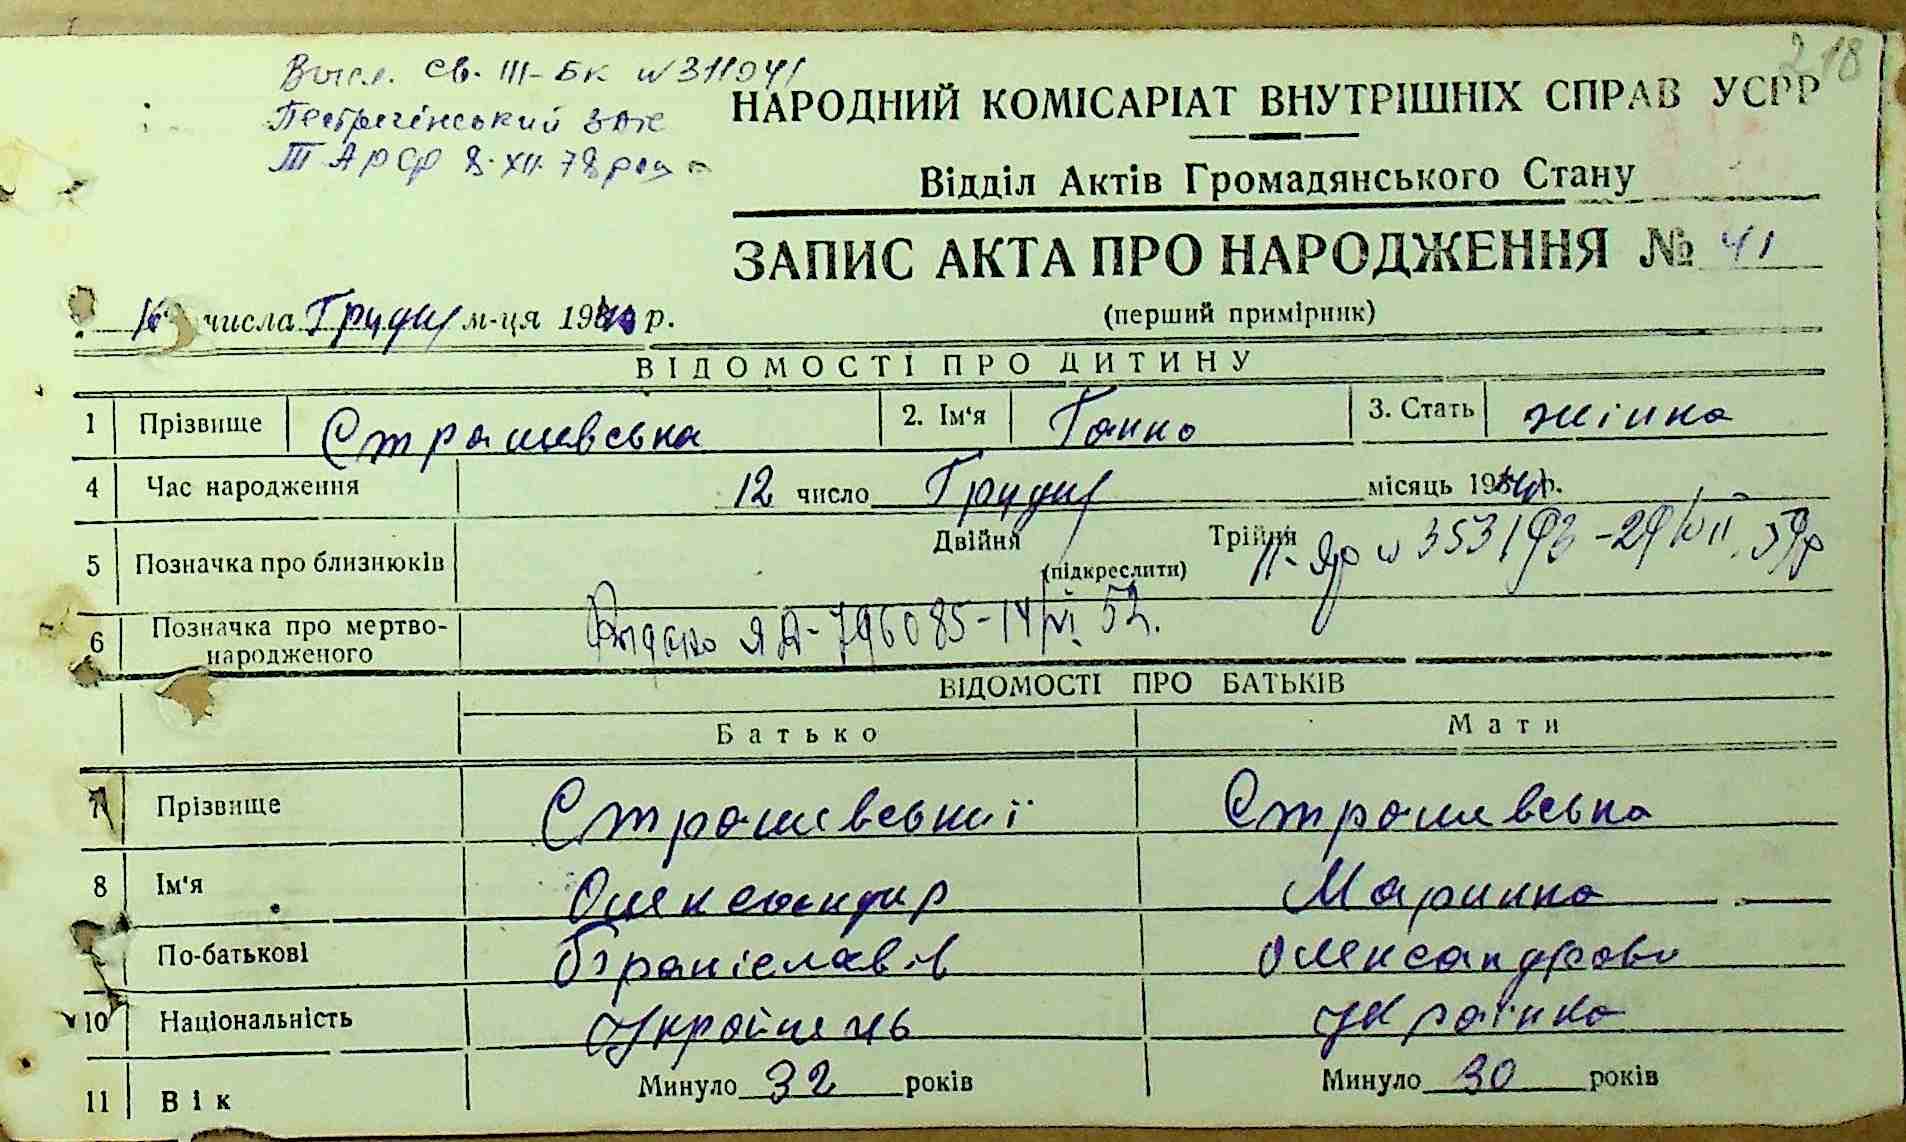 218
Висл. св. III-БК N 311041
НАРОДНИЙ КОМІСАРІАТ ВНУТРІШНІХ СПРАВ УСРР
Відділ Актів Громадянського Стану
ЗАПИС АКТА ПРО НАРОДЖЕННЯ № 41
(перший примірник)
числа Грудня м-ця 19 р.
ВІДОМОСТІ ПРО ДИТИНУ
1 Прізвище Страшевська 2. Ім'я Ганна 3. Стать жінка
4 Час народження 12 число Грудня місяць 19 р.
5 Позначка про близнюків Двійня Трійня
(підкреслити)
6 Позначка про мертво-
народженого
Видано ЯА-796085-14/VI 52.
ВІДОМОСТІ ПРО БАТЬКІВ
Батько Мати
7 Прізвище Страшевський Страшевська
8 Ім'я Олександр Марина
По-батькові Браніславів Олександрова
10 Національність Українець Українка
11 Вік Минуло 32 років Минуло 30 років